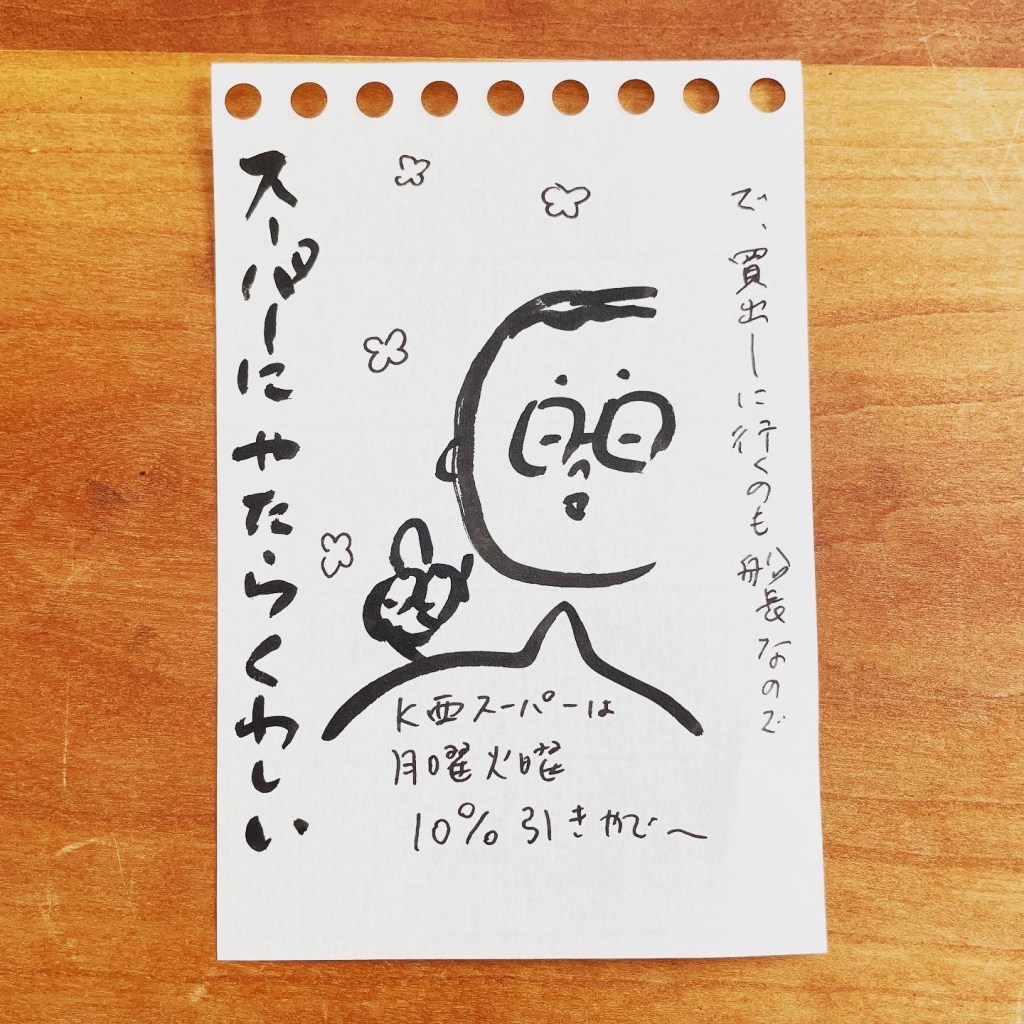 で、買出しに行くのも船長なので
スーパーにやたらくわしい
K西スーパーは
月曜火曜
10%引きやで〜